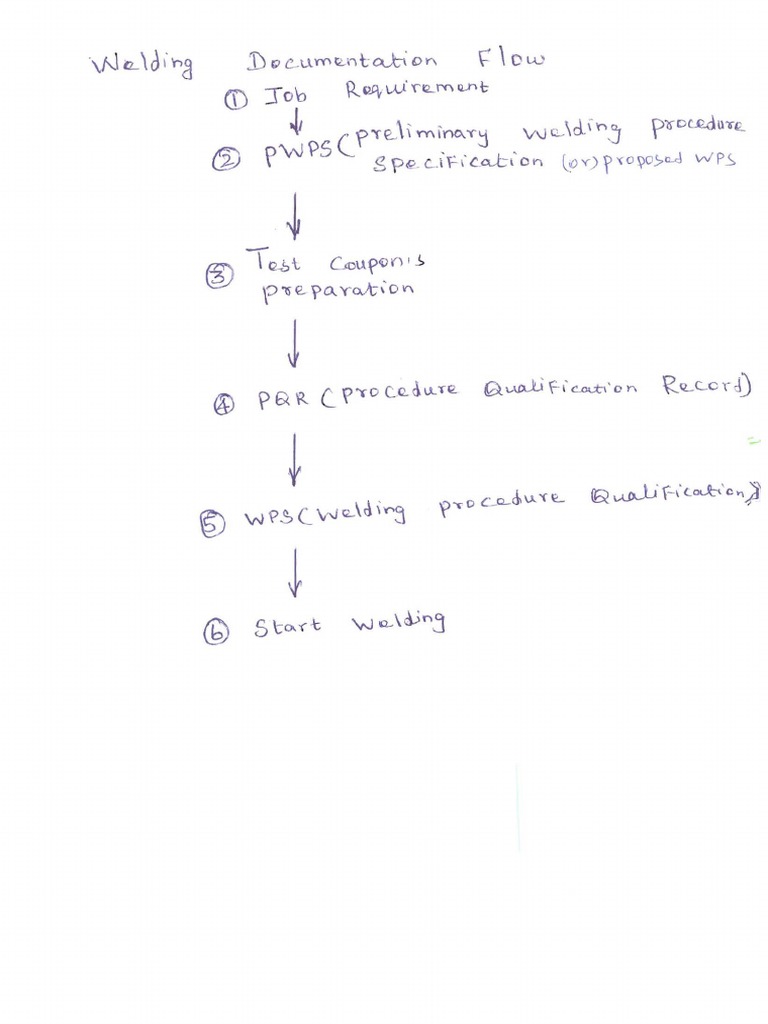 Welding Documentation Flow
① Job Requirement
② PWPS (Preliminary Welding Procedure
Specification (or) proposed WPS
③ Test Coupon's
preparation
④ PQR (Procedure Qualification Record)
⑤ WPS (Welding procedure Qualification)
⑥ Start Welding